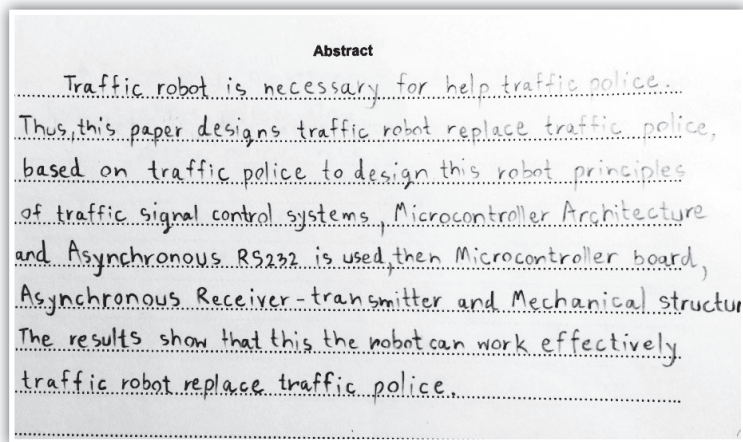 Abstract
Traffic robot is necessary for help traffic police.
Thus, this paper designs traffic robot replace traffic police,
based on traffic police to design this robot principles
of traffic signal control systems, Microcontroller Architecture
and Asynchronous RS232 is used, then Microcontroller board,
Asynchronous Receiver-transmitter and Mechanical structur
The results show that this the robot can work effectively
traffic robot replace traffic police.